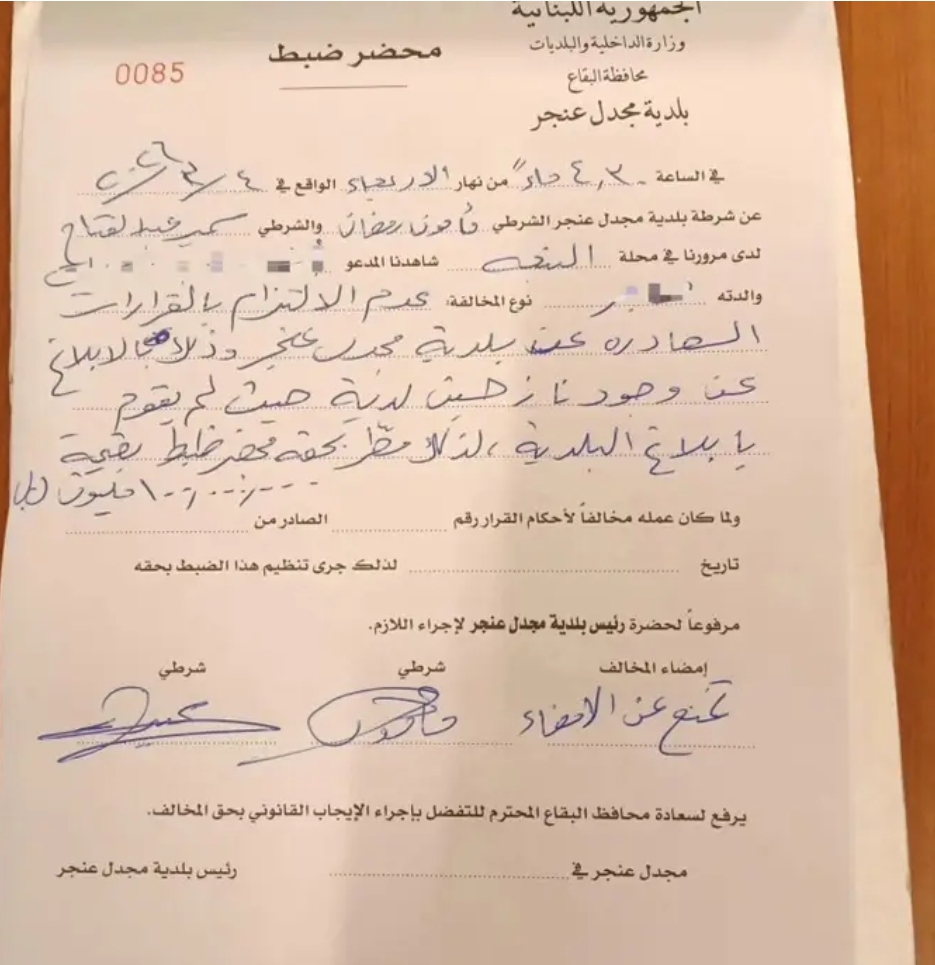 الجمهورية اللبنانية
وزارة الداخلية والبلديات
محافظة البقاع
بلدية مجدل عنجر
محضر ضبط
0085
في الساعة ٤,٣٠ مساءً من نهار الاربعاء الواقع في ٤/٣/٢٠٢٦
عن شرطة بلدية مجدل عنجر الشرطي مأمون رمضان والشرطي سمير عبد الفتاح
لدى مرورنا في محلة شاهدنا المدعو
والدته نوع المخالفة: عدم الالتزام بالقرارات
الصادره عن بلدية مجدل عنجر وذلك بالابلاغ
عن وجود نازحين لدية حيث لم يقوم
بابلاغ البلدية، لذلك بحقه محضر ظبط بقيمة
مليون ل.ل
ولما كان عمله مخالفاً لأحكام القرار رقم الصادر من
تاريخ لذلك جرى تنظيم هذا الضبط بحقه
مرفوعاً لحضرة رئيس بلدية مجدل عنجر لإجراء اللازم.
إمضاء المخالف شرطي شرطي
تمنع عن الامضاء مأمون
يرفع لسعادة محافظ البقاع المحترم للتفضل بإجراء الإيجاب القانوني بحق المخالف.
مجدل عنجر في رئيس بلدية مجدل عنجر